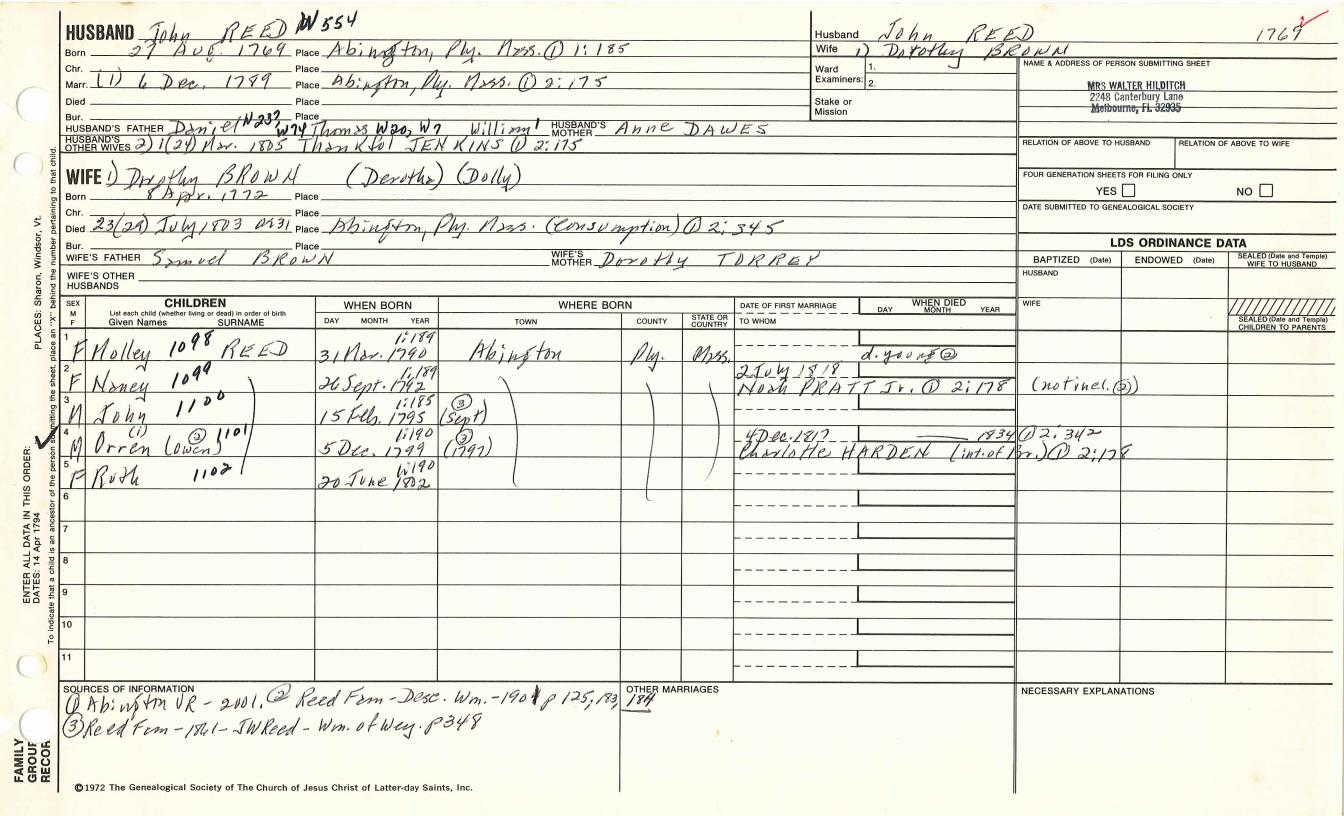 HUSBAND John REED W554
Born 27 Aug. 1769 Place Abington, Ply. Mass. ① 1:185
Chr. Place
Marr. (1) 6 Dec. 1789 Place Abington, Ply. Mass. ① 2:175
Died Place
Bur. Place
HUSBAND'S FATHER Daniel W237, W74 Thomas W20, W7 William¹ HUSBAND'S MOTHER Anne DAWES
HUSBAND'S OTHER WIVES 2) 1(24) Mar. 1805 Thankful JENKINS ① 2:175
Husband John REED 1769
Wife 1) Dorothy BROWN
Ward Examiners: 1.
2.
Stake or Mission
NAME & ADDRESS OF PERSON SUBMITTING SHEET
MRS WALTER HILDITCH
2248 Canterbury Lane
Melbourne, FL 32935
RELATION OF ABOVE TO HUSBAND RELATION OF ABOVE TO WIFE
FOUR GENERATION SHEETS FOR FILING ONLY
YES NO
DATE SUBMITTED TO GENEALOGICAL SOCIETY
WIFE 1) Dorothy BROWN (Derotha) (Dolly)
Born 8 Apr. 1772 Place
Chr. Place
Died 23(29) July, 1803 ae31 Place Abington, Ply. Mass. (Consumption) ① 2:345
Bur. Place
WIFE'S FATHER Samuel BROWN WIFE'S MOTHER Dorothy TORREY
WIFE'S OTHER HUSBANDS
LDS ORDINANCE DATA
BAPTIZED (Date) ENDOWED (Date) SEALED (Date and Temple) WIFE TO HUSBAND
HUSBAND
WIFE
SEALED (Date and Temple) CHILDREN TO PARENTS
SEX M F CHILDREN WHEN BORN WHERE BORN DATE OF FIRST MARRIAGE WHEN DIED
List each child (whether living or dead) in order of birth
Given Names SURNAME DAY MONTH YEAR TOWN COUNTY STATE OR COUNTRY TO WHOM DAY MONTH YEAR
1 F Molley 1098 REED 31 Mar. 1790 1:189 Abington Ply. Mass. d. young ②
2 F Nancy 1099 26 Sept. 1792 1:189 2 July 1818 Noah PRATT Jr. ① 2:178 (not incl. ②)
3 M John 1100 15 Feb. 1795 1:185 ③ (Sept)
4 M Orren (i) (Owen) ③ 1101 5 Dec. 1799 1:190 ③ (1797) 4 Dec. 1817 1834 ① 2:342
Charlotte HARDEN (int. of Br.) ① 2:178
5 F Ruth 1102 20 June 1802 1:190
6
7
8
9
10
11
SOURCES OF INFORMATION
① Abington VR - 2001. ② Reed Fam - Desc. Wm. - 1901 p 125, 183, 184
③ Reed Fam - 1861 - JWReed - Wm. of Wey. p 348
OTHER MARRIAGES
NECESSARY EXPLANATIONS
©1972 The Genealogical Society of The Church of Jesus Christ of Latter-day Saints, Inc.
ENTER ALL DATA IN THIS ORDER:
DATES: 14 Apr 1794 PLACES: Sharon, Windsor, Vt.
To indicate that a child is an ancestor of the person submitting the sheet, place an "X" behind the number pertaining to that child.
FAMILY
GROUP
RECOR